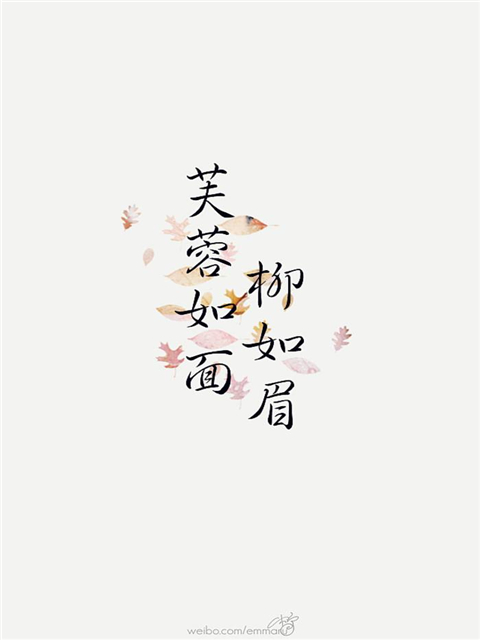 芙蓉如面
柳如眉
weibo.com/emman